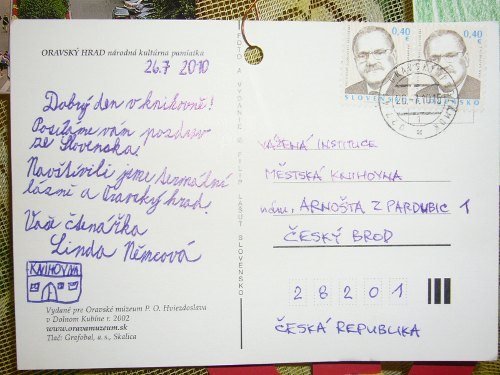 ORAVSKÝ HRAD národná kultúrna pamiatka
26.7 2010
Dobrý den v knihovně!
Posíláme vám pozdrav
ze Slovenska.
Navštívili jsme termální
lázně a Oravský hrad.
Vaše čtenářka
Linda Němcová
KNIHOVNA
Vydané pre Oravské múzeum P. O. Hviezdoslava
v Dolnom Kubíne r. 2002
www.oravamuzeum.sk
Tlač: Grafobal, a. s., Skalica
FOTO A VYDANIE © FILIP LAŠUT SLOVENSKO
0,40 €
0,40 €
SLOVENSKO
VÁŽENÁ INSTITUCE
MĚSTSKÁ KNIHOVNA
nám. ARNOŠTA Z PARDUBIC 1
ČESKÝ BROD
28201
ČESKÁ REPUBLIKA